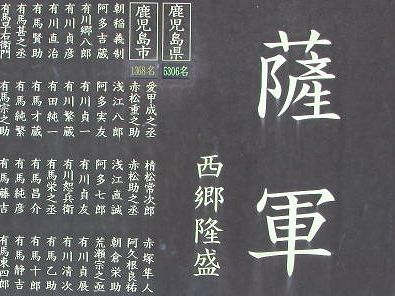 薩軍
西郷隆盛
鹿児島県
5306名
鹿児島市
1368名
愛甲成之丞
赤松重之助
浅江八郎
阿多実友
有川貞一
有川繁蔵
有田純一
有馬才蔵
有馬純繁
有馬宗之助
朝稲義制
阿多吉蔵
有川郷八郎
有川貞彦
有川直治
有馬賢助
有馬甚之丞
有馬早右衛門
精松常次郎
赤松助之丞
浅江直誠
阿多七郎
有川貞友
有川恕兵衛
有馬栄之丞
有馬昌介
有馬純彦
有馬藤吉
赤塚隼人
阿久根良祐
朝倉栄助
荒瀬宗之亟
有川貞展
有川清次
有馬乙助
有馬十郎
有馬静吉
有馬東四郎